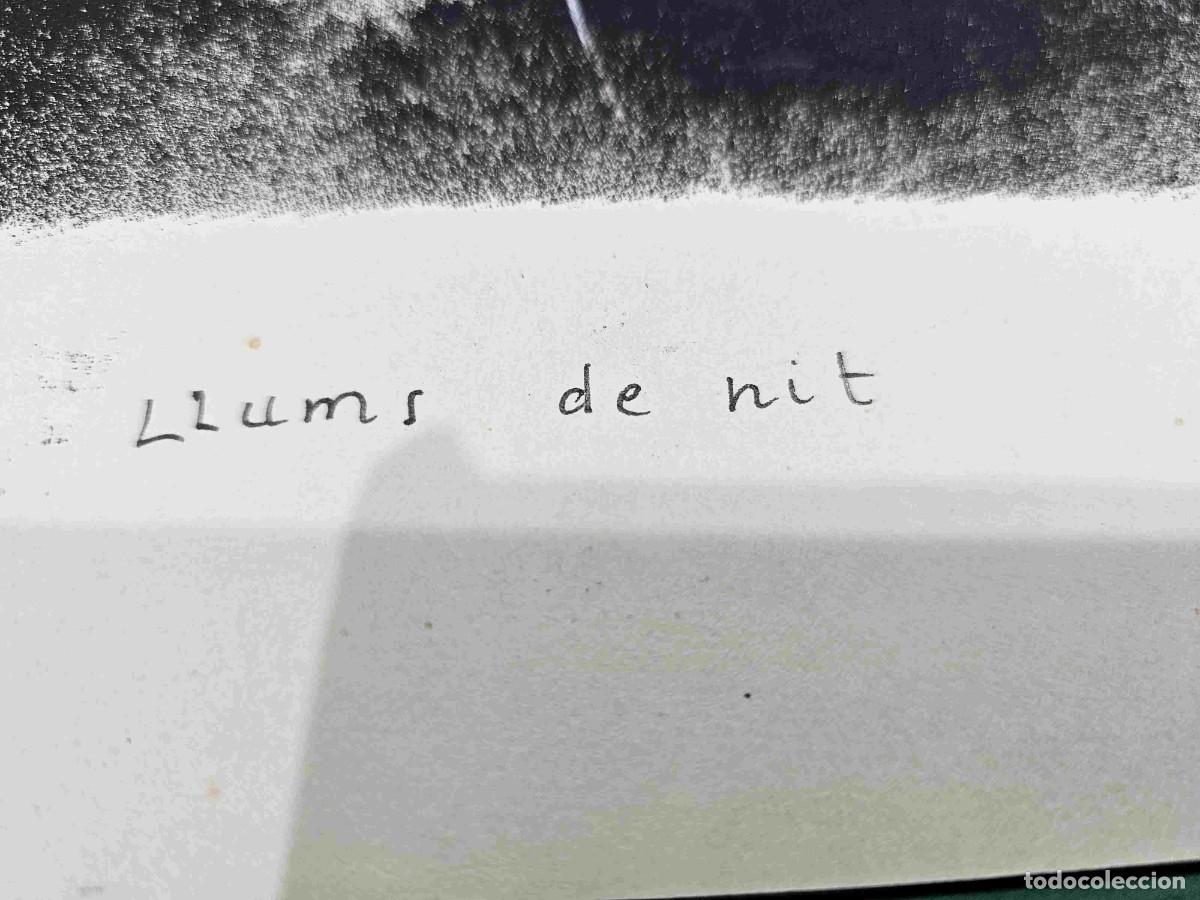 Llums de nit
todocoleccion